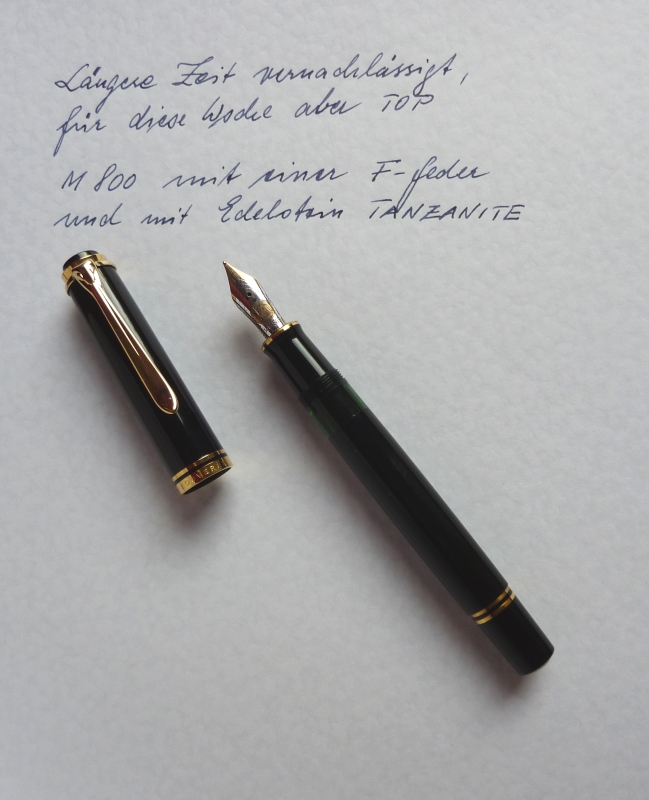 Längere Zeit vernachlässigt,
für diese Woche aber TOP
M 800 mit einer F-Feder
und mit Edelstein TANZANITE